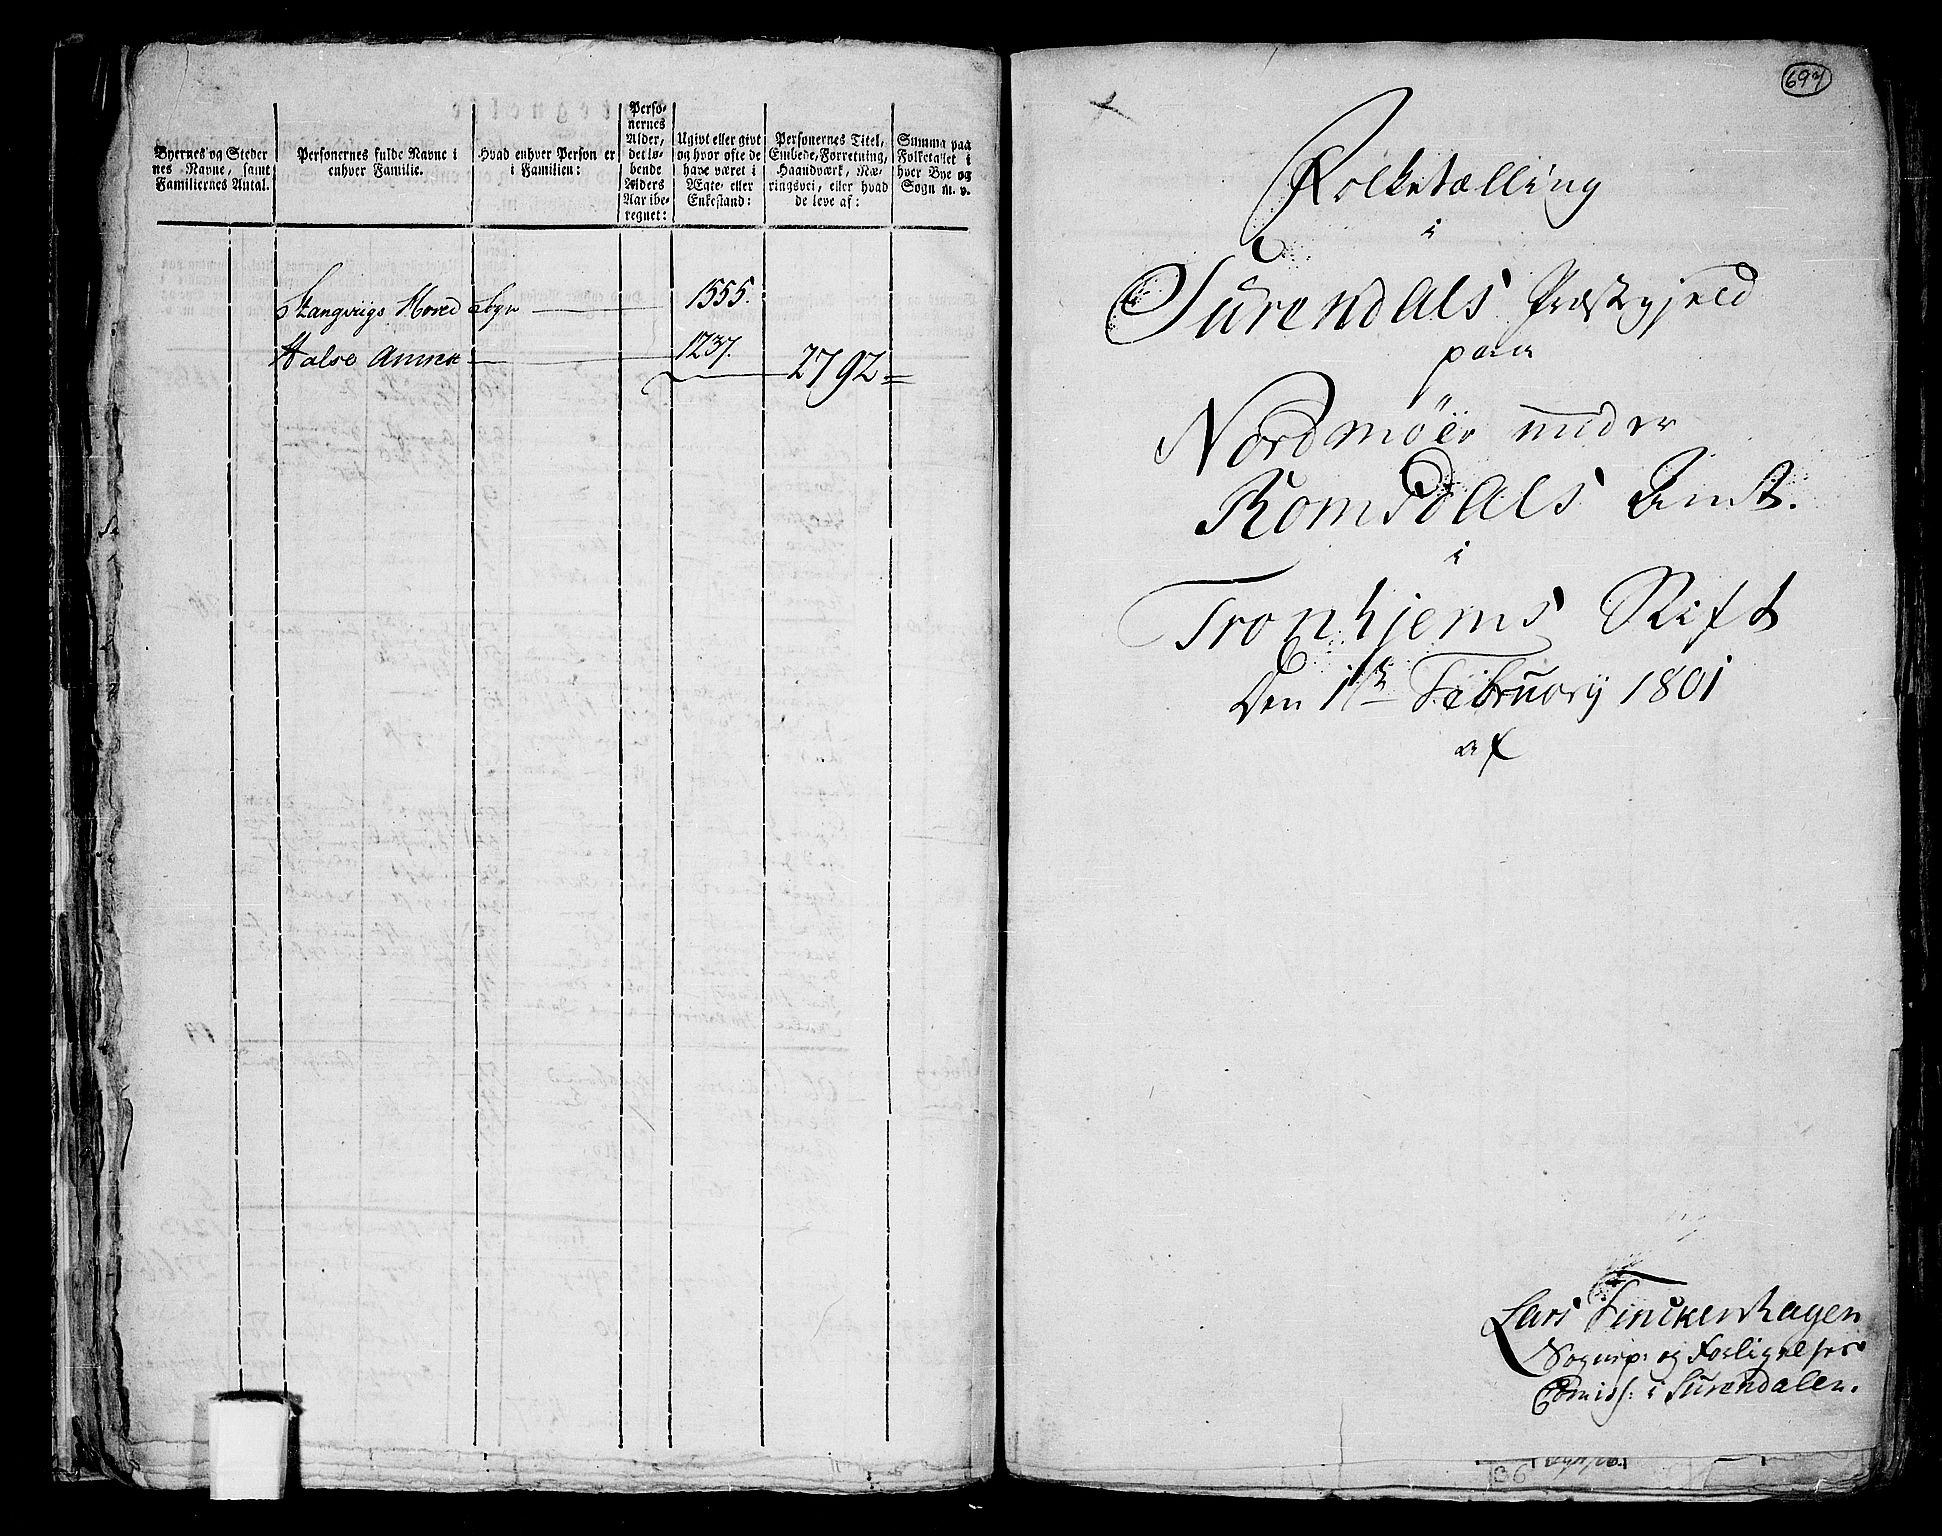 Byernes og Steder
nes Navne, samt
Familiernes Antal.
Personernes fulde Navne i
enhver Familie.
Hvad enhver Person er
i Familien:
Perso-
nernes
Alder,
det lø-
bende
Alders
Aar ibe-
regnet:
Ugivt eller givt
og hvor ofte de
have været i
Ægte- eller
Enkestand:
Personernes Titel,
Embede, Forretning,
Haandværk, Næ-
ringsvei, eller hvad
de leve af:
Summa paa
Folketallet i
hver Bye og
Sogn m. v.
Stangvigs Hoved Sogn — 1555.
Halse Annex — 1237.
2792
697
Folketælling
i
Surendals Præstegjeld
paa
Nordmöer under
Romsdals Amt.
i
Tronhjems Stift
Den 1te Februarij 1801
af
Lars Finckenhagen
Sognep: og Forligelses
Comiss: i Surendalen.
36